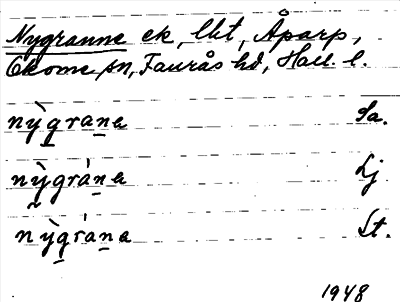 Nygranne ek, lht, Åparp,
Okome sn, Faurås hd, Hall. l.
nỳgrana Sa.
nỳgrána Lj
nỳgrána St.
1948